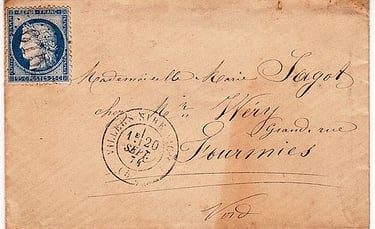 REPUB. FRANC.
25 C. POSTES 25 C.
Mademoiselle Marie Sagot
chez Mr Wéry
Grande rue
Fourmies
Nord
VILLERS
1E
20
SEPT.
74